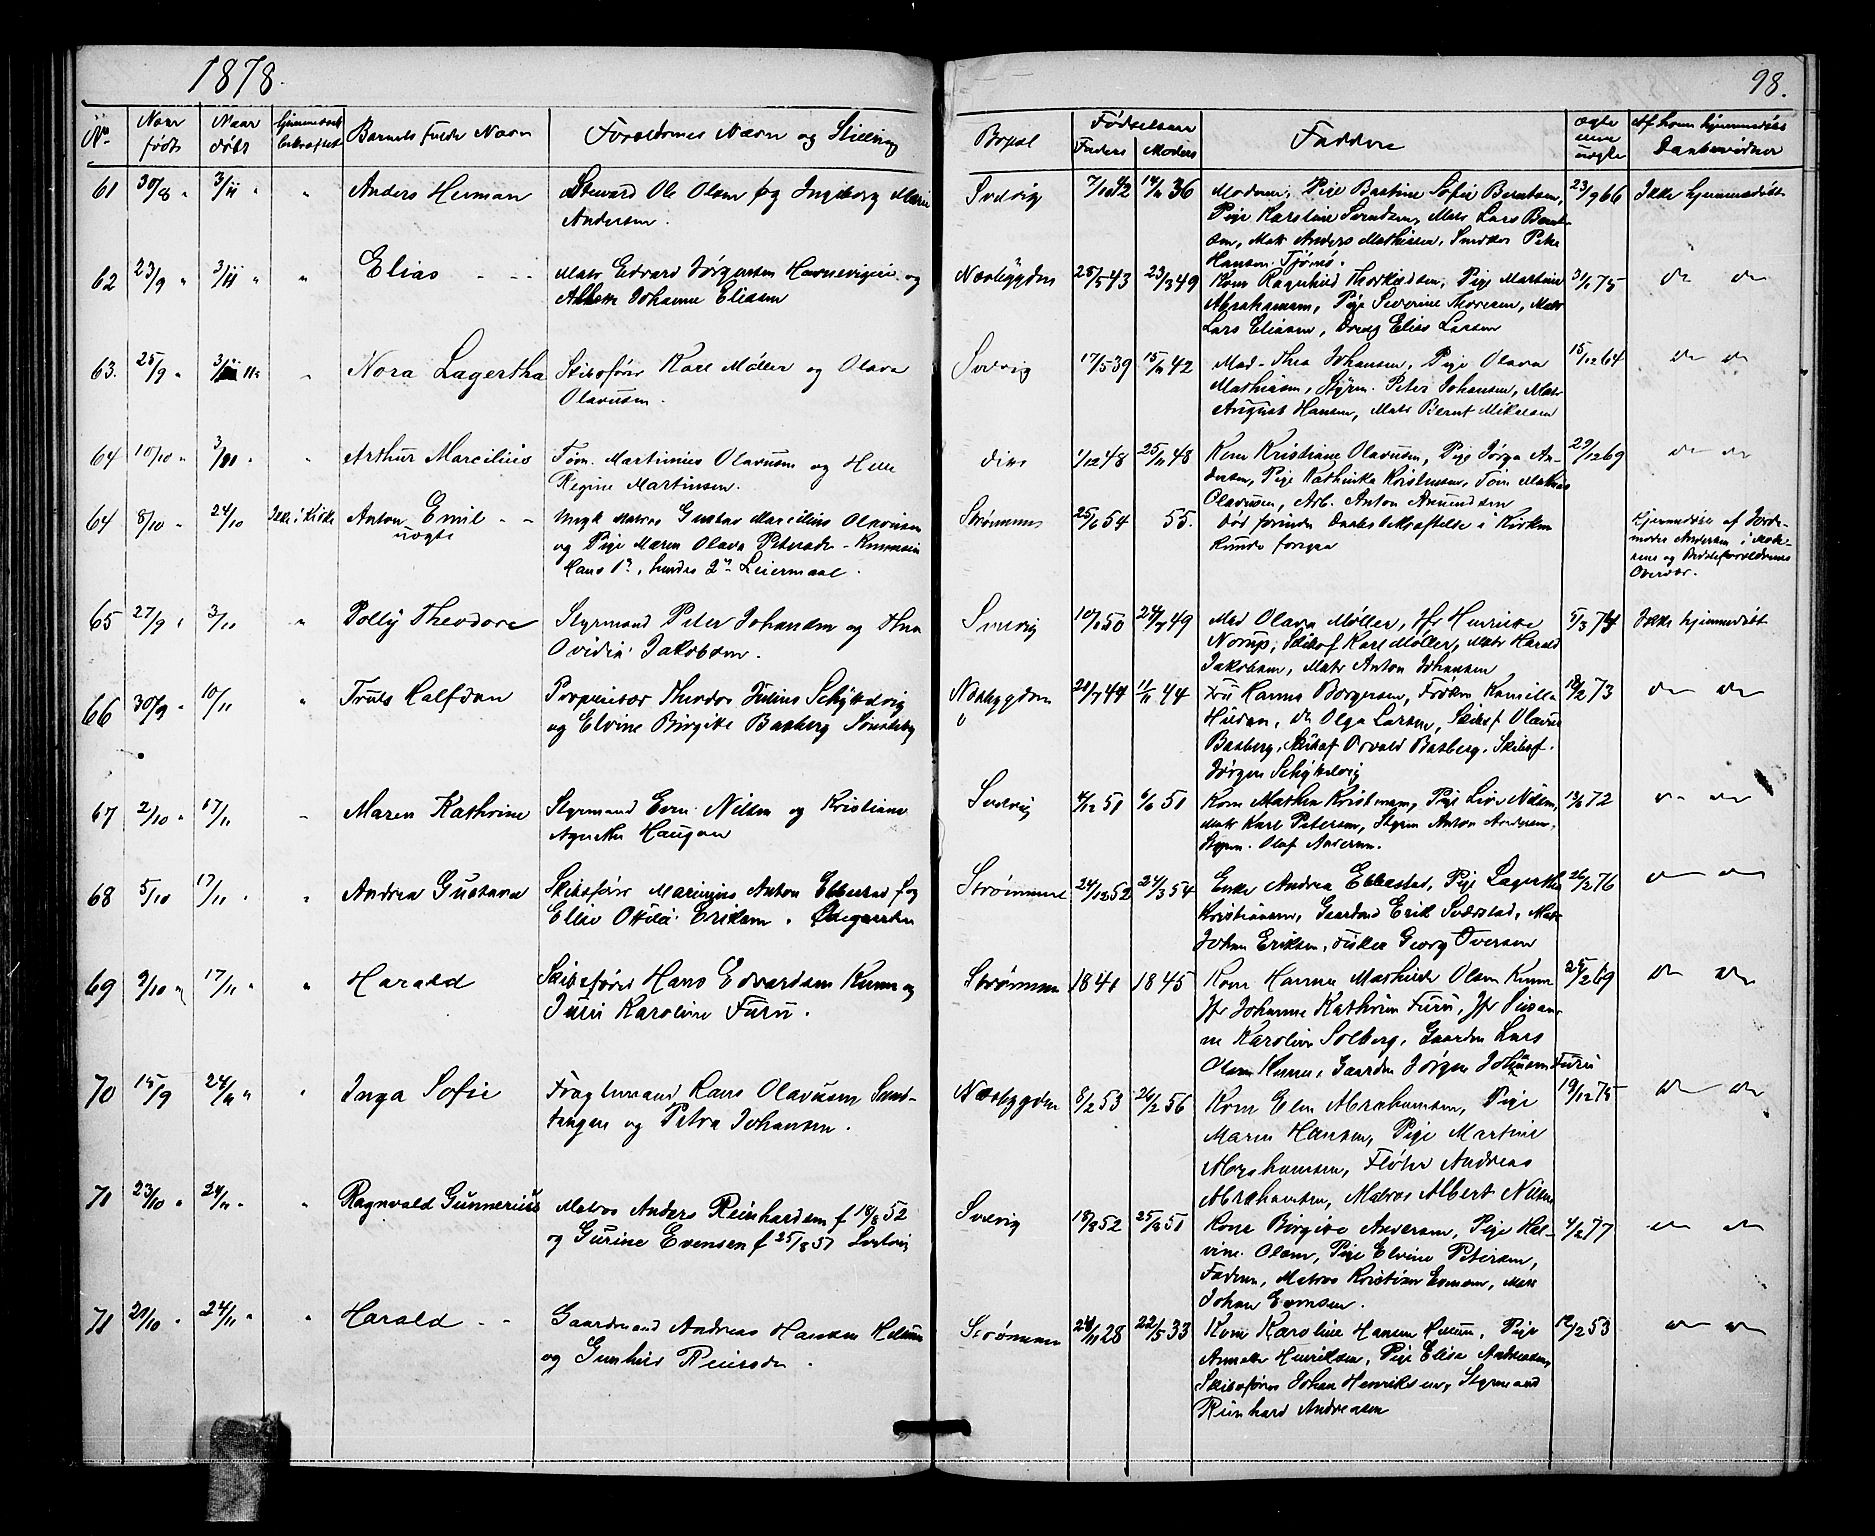 1878.
98.
No. Naar født Naar døbt Hjemmedaab bekræftet Barnets fulde Navn Forældrenes Navn og Stilling Bopæl Fødselsaar Faders Moders Faddere ægte uægte Af hvem hjemmedøbt Daabsvidner
61 30/8 " 3/11 " " Anders Herman
Steward Ole Olsen og Ingeborg Marie
Andersen.
Svelvig 14/11 36
Moderen, Pige Bastine Sofie Berntsen,
Pige Karstine Svendsen, Matr Lars Bernt-
sen, Matr Anders Mathisen, Peter
Hansen Tjømø.
23/9 66 Ikke hjemmedøbt
62 23/9 " 3/11 " " Elias - - -
Matr Edvard Jørgensen og
Johanne Eliasen
Næsbygden 25/5 43 23/3 49
Kone Ragnhild Thorkildsen, Pige Martine
Abrahamsen, Pige Severine Thoresen, Matr
Lars Eliasen, Dreng Elias Larsen
3/1 75 do do
63. 25/9 " 3/11 " Nora Lagertha
Skibsfører Karl Møller og Olava
Olavusen.
Svelvig 17/5 39 15/11 42
Mad. Thea Johansen, Pige Olava
Mathisen, Styrm. Peter Johansen, Matr
August Hansen, Matr Bernt Mikelsen
15/12 64 do do
64 10/10 " 3/11 " " Arthur Marcilius
Tøm. Martinius Olavusen og Helle
Regine Martinsen.
1/12 48 25/11 48
Kone Kristiane Olavusen, Pige Jørga An-
dersen, Pige Kathinka Kristensen, Tøm Mathias
Olavusen, Arb. Anton Amundsen
29/12 69 do do
64 8/10 " 24/10 Ikke i Kirke Anton Emil - -
uægte
Ungk Matros Gustav Marcilius Olavusen
og Pige Maren Olava Petersdr -
Hans 1ste, hendes 2de Leiermaal.
Strømmen 25/6 54 55.
Død forinden Daabs Bekræftelse i Kirken
kunde foregaa
Hjemmedøbt af Jorde-
moder Andersen i Mode-
rens og Bedsteforældrenes
Overvær.
65 27/9 " 3/11 " Polly Theodora
Styrmand Peter Johansen og Thea
Ovidia Jakobsen.
Svelvig 10/1 50 24/7 49
Mad Olava Møller, Jfr Henriette
Norup, Skibsf Karl Møller, Matr Harald
Jakobsen, Matr Anton Johansen
5/3 74 Ikke hjemmedøbt
66 30/9 " 10/11 " Truls Halfdan
Proprietær Theodor Julius Schytelvig
og Elvine Birgitte Basberg Sandeby
Næsbygden 20/7 44 11/11 44
Fru Hanna Borgersen, Frøken Kamilla
do Olga Larsen, Skibsf Olavus
Basberg, Skibsf Osvald Basberg, Skibsf.
Jørgen Schytelvig
18/2 73 do do
67 2/10 " 17/11 " Maren Kathrine
Styrmand Even Nilsen og Kristiane
Agnethe Haugan
Svelvig 4/12 51 6/6 51
Kone Mathea Kristensen, Pige Lise Nilsen,
Matr Karl Petersen, Styrm Anton Andersen,
Styrm. Olaf Andersen.
13/6 72 do do
68 5/10 17/11 " " Andrea Gustava
Skibsfører Marinius Anton Ebbestad og
Ellen Otilie Eriksen. Ødegaarden
Strømmen 24/12 52 24/3 54
Enke Andrea Ebbestad, Pige Lagertha
Kristiansen, Gaardmd Erik Sverstad, Matr
Johan Eriksen, Fisker Georg Iversen
26/2 76 do do
69 9/10 " 17/11 " " Harald
Skibsfører Hans Edvardsen Kunne og
Juri Karoline Furu.
Strømmen 1841 1845
Kone Hanna Mathilde Olsen Kunne
Jfr Johanne Kathrine Furu, Jfr Susan-
ne Karoline Solberg, Gaardm Lars
Olsen Kunne, Gaardm Jørgen Johansen Furu
25/2 69 do do
70 15/9 24/11 " " Inga Sofie
Fragtemand Hans Olavusen Sand-
tangen og Petra Johansen.
Næsbygden 8/2 53 26/2 56
Kone Elen Abrahamsen, Pige
Maren Hansen, Pige Martine
Abrahamsen, Fløter Andreas
Abrahamsen, Matros Albert Nilsen
19/12 75 do do
71 23/10 " 24/11 " " Ragnvald Gunnerius
Matros Anders Reinhardsen f 18/8 52
og Gurine Evensen f 25/8 51 Svelvig
Svelvig 18/8 52 25/8 51
Kone Birgitte Andersen, Pige Hel-
vine Olsen, Pige Elvine Petersen,
Faderen, Matros Kristian Evensen, Matr
Johan Evensen.
4/2 77 do do
71 21/10 " 24/11 " " Harald - -
Gaardmand Andreas Hansen
og Gunhild Reiersdr.
Strømmen 24/11 28 22/5 33
Kone Karoline Hansen, Pige
Annette Henriksen, Pige Elise Andreasen,
Skibsfører Johan Henriksen, Styrmand
Reinhard Andreasen
12/2 53 do do